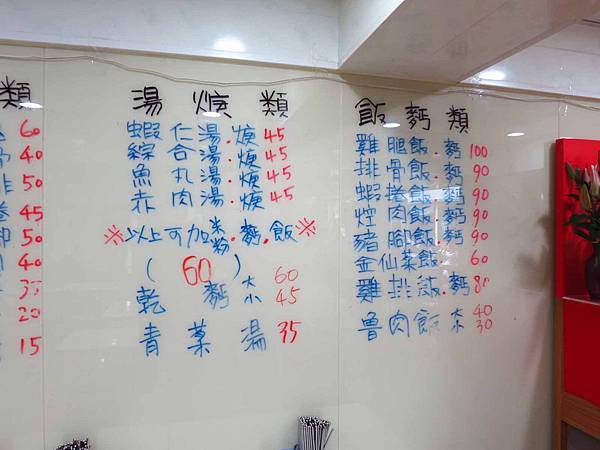 類
60
40
50
45
50
40
35
20
15
湯焿類
蝦仁湯.焿45
綜合湯.焿45
魚丸湯.焿45
赤肉湯.焿45
※以上可加米粉.麵.飯※
(60)
乾麵大60
小45
青菜湯35
飯麵類
雞腿飯.麵100
排骨飯.麵90
蝦捲飯.麵90
焢肉飯.麵90
豬腳飯.麵90
金仙菜飯.60
雞排飯.麵80
魯肉飯大40
小30